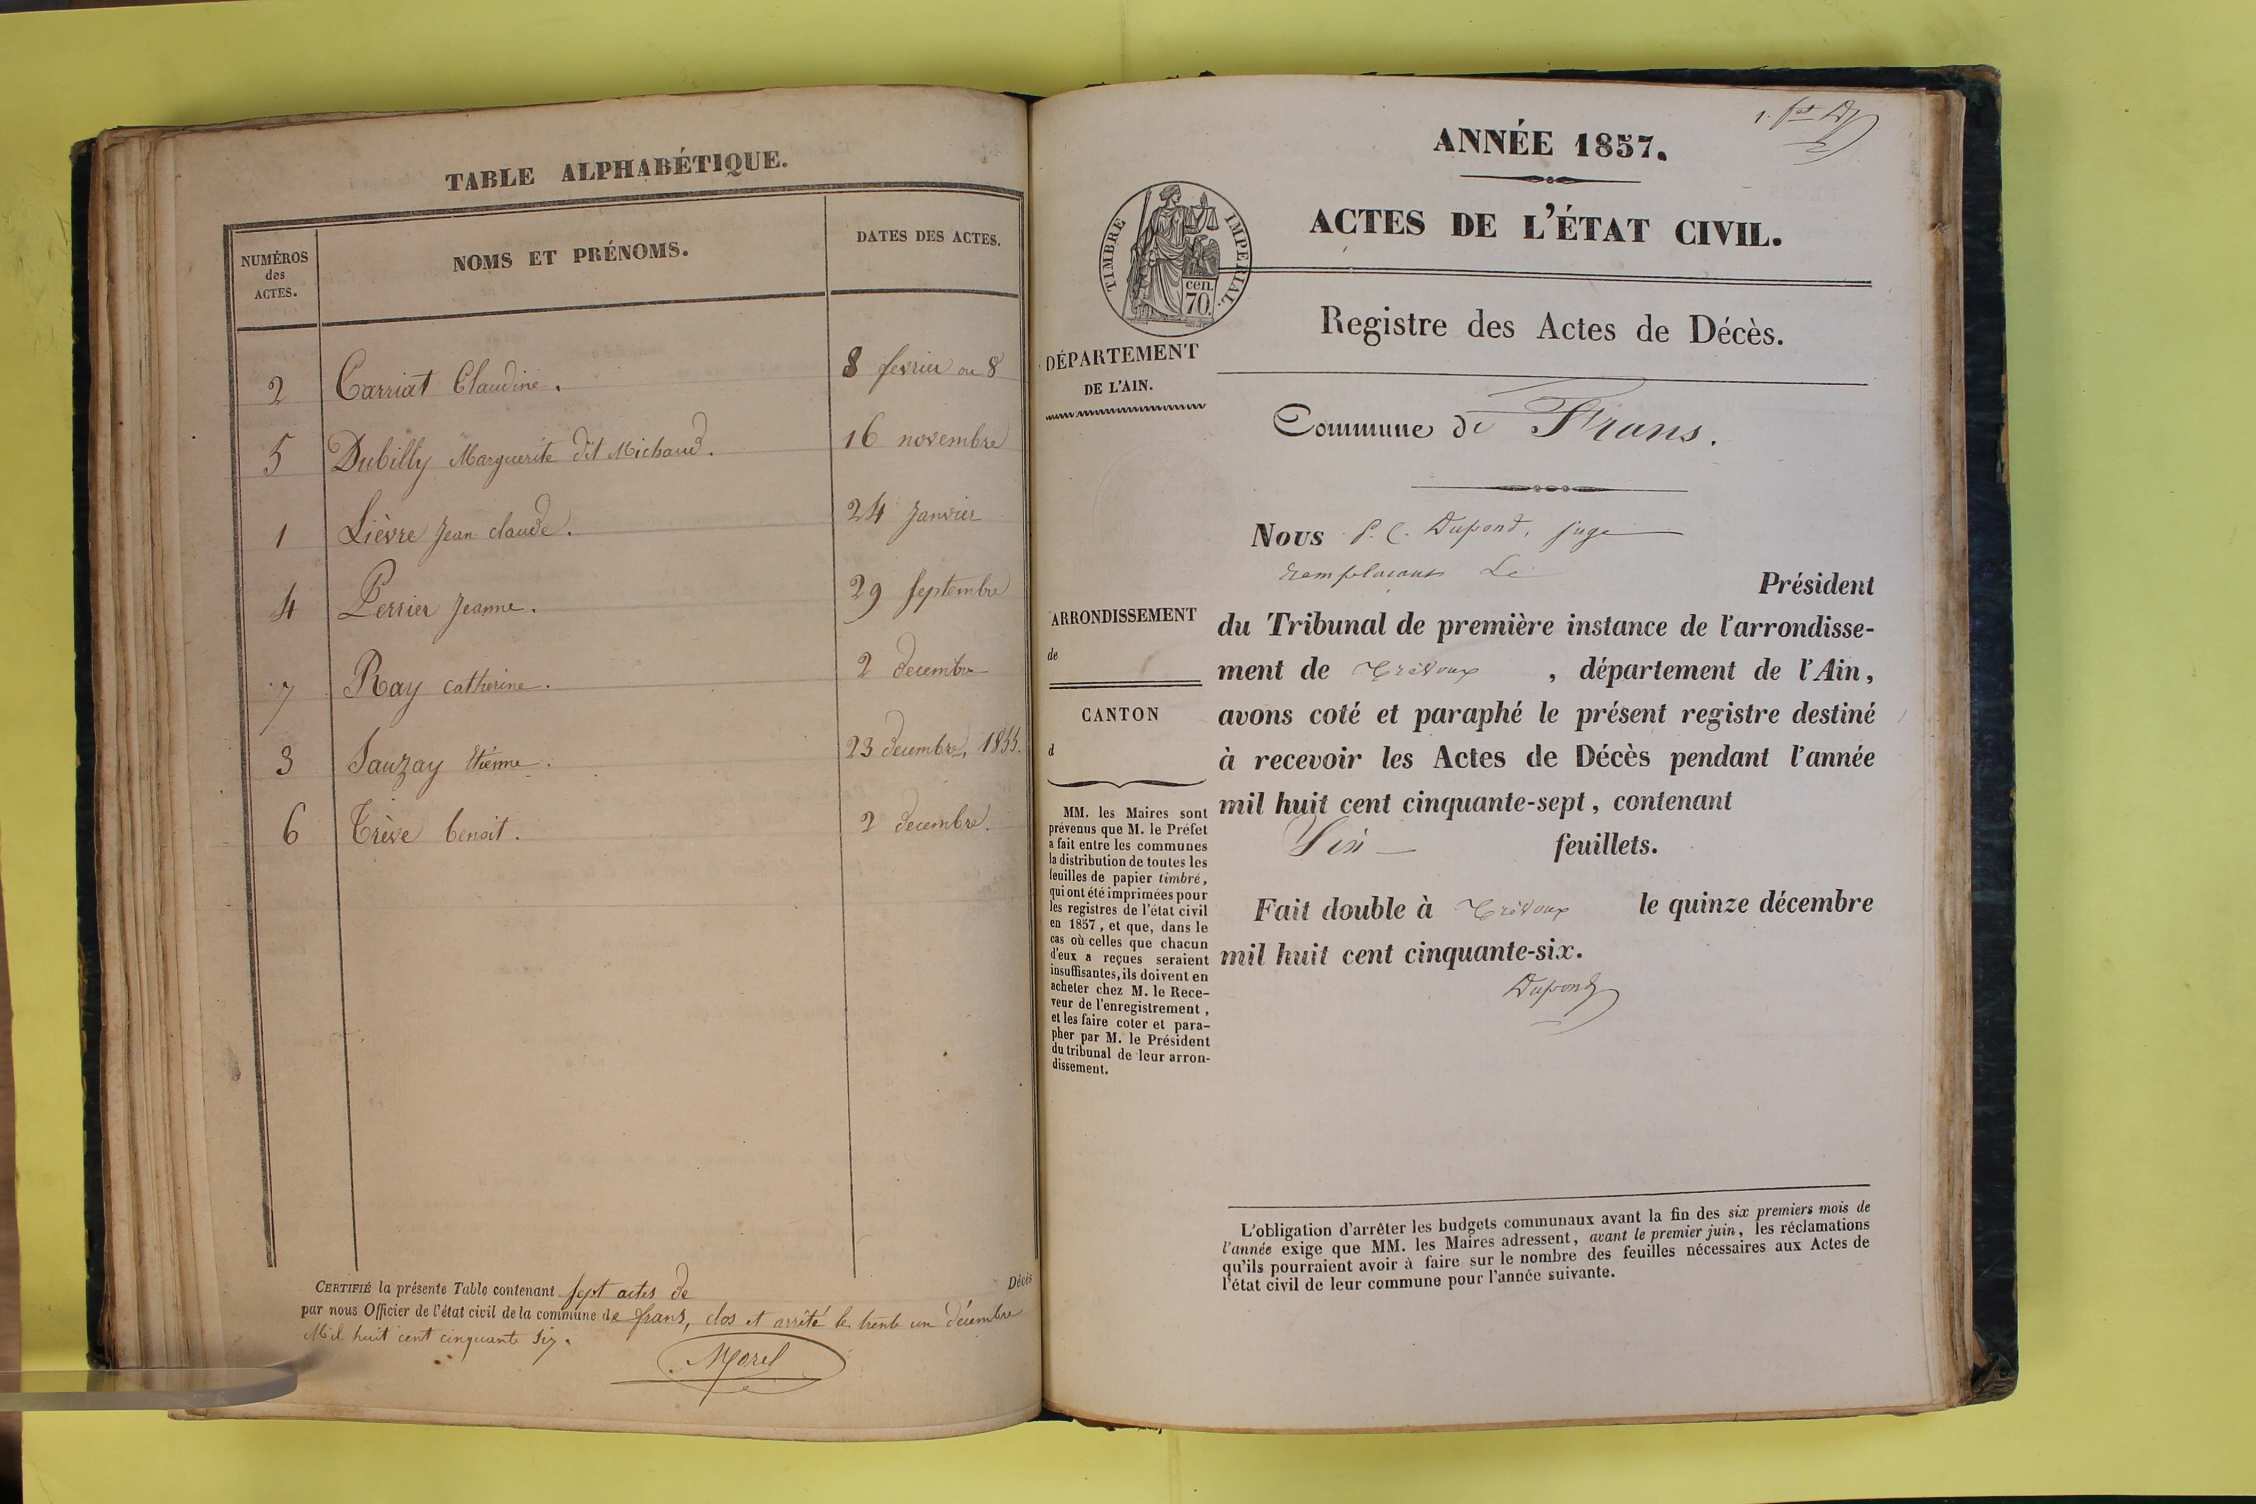 TABLE ALPHABÉTIQUE.
NUMÉROS
des
ACTES.
NOMS ET PRÉNOMS.
DATES DES ACTES.
2 Carriat Claudine. 8 fevrier ou 8
5 Dubilly Marguerite dit Michaud. 16 novembre
1 Lièvre Jean claude. 24 Janvier
4 Perrier Jeanne. 29 Septembre
7 Ray catherine. 2 decembre
3 Sauzay Etienne. 23 decembre, 1855.
6 Trève benoit. 2 decembre.
CERTIFIÉ la présente Table contenant sept actes de Décès
par nous Officier de l'état civil de la commune de frans, clos et arrêté le trente un décembre
Mil huit cent cinquante six.
Morel
1. fet
ANNÉE 1857.
ACTES DE L'ÉTAT CIVIL.
TIMBRE IMPERIAL.
cen.
70.
Registre des Actes de Décès.
DÉPARTEMENT
DE L'AIN.
Commune de Frans.
Nous P. C. Dupond, juge
remplacant Le
Président
ARRONDISSEMENT
de
CANTON
d
du Tribunal de première instance de l'arrondisse-
ment de Trévoux, département de l'Ain,
avons coté et paraphé le présent registre destiné
à recevoir les Actes de Décès pendant l'année
mil huit cent cinquante-sept, contenant
Six feuillets.
Fait double à Trévoux le quinze décembre
mil huit cent cinquante-six.
Dupond
MM. les Maires sont
prévenus que M. le Préfet
a fait entre les communes
la distribution de toutes les
feuilles de papier timbré,
qui ont été imprimées pour
les registres de l'état civil
en 1857, et que, dans le
cas où celles que chacun
d'eux a reçues seraient
insuffisantes, ils doivent en
acheter chez M. le Rece-
veur de l'enregistrement,
et les faire coter et para-
pher par M. le Président
du tribunal de leur arron-
dissement.
L'obligation d'arrêter les budgets communaux avant la fin des six premiers mois de
l'année exige que MM. les Maires adressent, avant le premier juin, les réclamations
qu'ils pourraient avoir à faire sur le nombre des feuilles nécessaires aux Actes de
l'état civil de leur commune pour l'année suivante.